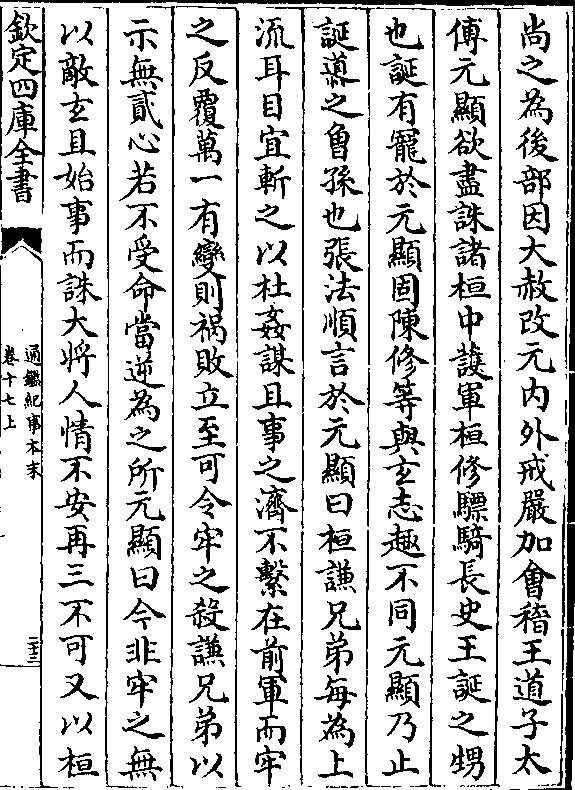 尚之為後部因大赦改元内外戒嚴加㑹稽王道子太
傅元顯欲盡誅諸桓中護軍桓修驃騎長史王誕之甥
也誕有寵於元顯固陳修等與𤣥志趣不同元顯乃止
誕導之曽孫也張法順言於元顯曰桓謙兄弟每為上
流耳目宜斬之以杜姦謀且事之濟不繫在前軍而牢
之反覆萬一有變則禍敗立至可令牢之殺謙兄弟以
示無貳心若不受命當逆為之所元顯曰今非牢之無
以敵𤣥且始事而誅大將人情不安再三不可又以桓
欽定四庫全書
通鑑紀事本末
卷十七上
二十三